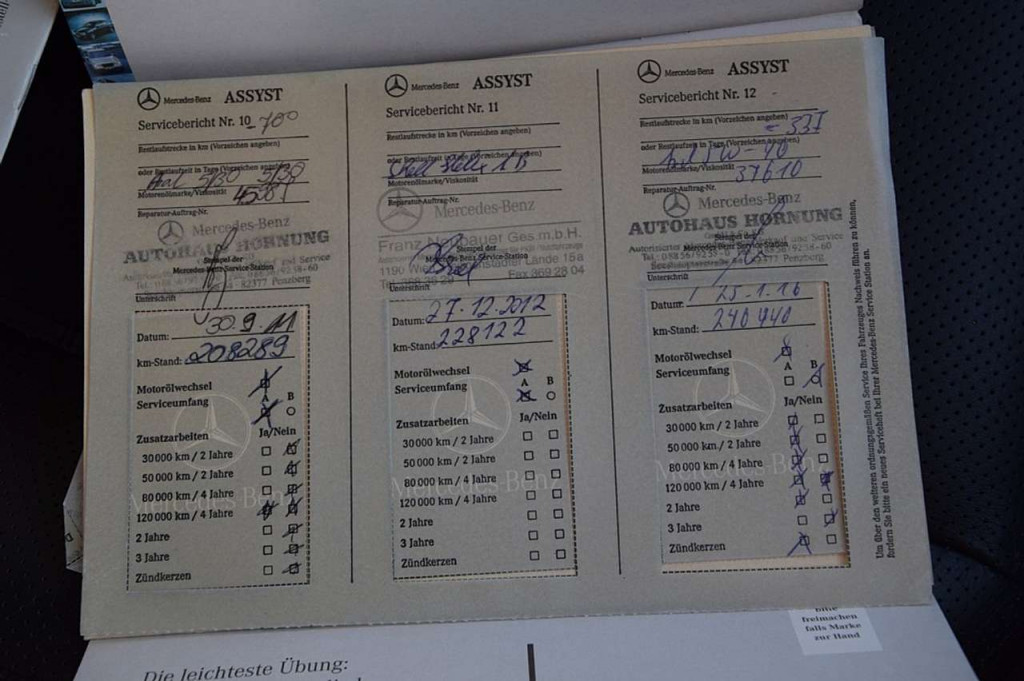 Mercedes-Benz ASSYST
Servicebericht Nr. 10
-700
Restlaufstrecke in km (Vorzeichen angeben)
oder Restlaufzeit in Tage (Vorzeichen angeben)
5W30
Motorenölmarke/Viskosität
Reparatur-Auftrag-Nr.
Mercedes-Benz
AUTOHAUS HORNUNG
Stempel der
Mercedes-Benz Service-Station
82377 Penzberg
Unterschrift
Datum: 30.9.11
km-Stand: 208289
Motorölwechsel
A B
Serviceumfang
Zusatzarbeiten Ja/Nein
30 000 km / 2 Jahre
50 000 km / 2 Jahre
80 000 km / 4 Jahre
120 000 km / 4 Jahre
2 Jahre
3 Jahre
Zündkerzen
Mercedes-Benz
Mercedes-Benz ASSYST
Servicebericht Nr. 11
Restlaufstrecke in km (Vorzeichen angeben)
oder Restlaufzeit in Tage (Vorzeichen angeben)
Shell Helix
Motorenölmarke/Viskosität
Reparatur-Auftrag-Nr.
Mercedes-Benz
Franz Neubauer Ges.m.b.H.
Stempel der
Mercedes-Benz Service-Station
1190
Lände 15a
Fax 369 28 04
Unterschrift
Datum: 27.12.2012
km-Stand: 228122
Motorölwechsel
A B
Serviceumfang
Zusatzarbeiten Ja/Nein
30 000 km / 2 Jahre
50 000 km / 2 Jahre
80 000 km / 4 Jahre
120 000 km / 4 Jahre
2 Jahre
3 Jahre
Zündkerzen
Mercedes-Benz
Mercedes-Benz ASSYST
Servicebericht Nr. 12
Restlaufstrecke in km (Vorzeichen angeben)
oder Restlaufzeit in Tage (Vorzeichen angeben)
5W-40
Motorenölmarke/Viskosität
37610
Reparatur-Auftrag-Nr.
Mercedes-Benz
AUTOHAUS HORNUNG
Stempel der
Mercedes-Benz Service-Station
Penzberg
Unterschrift
Datum: 25.1.16
km-Stand: 240440
Motorölwechsel
A B
Serviceumfang
Zusatzarbeiten Ja/Nein
30 000 km / 2 Jahre
50 000 km / 2 Jahre
80 000 km / 4 Jahre
120 000 km / 4 Jahre
2 Jahre
3 Jahre
Zündkerzen
Um über den weiteren ordnungsgemäßen Service Ihres Fahrzeuges Nachweis führen zu können,
fordern Sie bitte ein neues Serviceheft bei Ihrer Mercedes-Benz Service Station an.
bitte
freimachen
falls Marke
zur Hand
Die leichteste Übung: